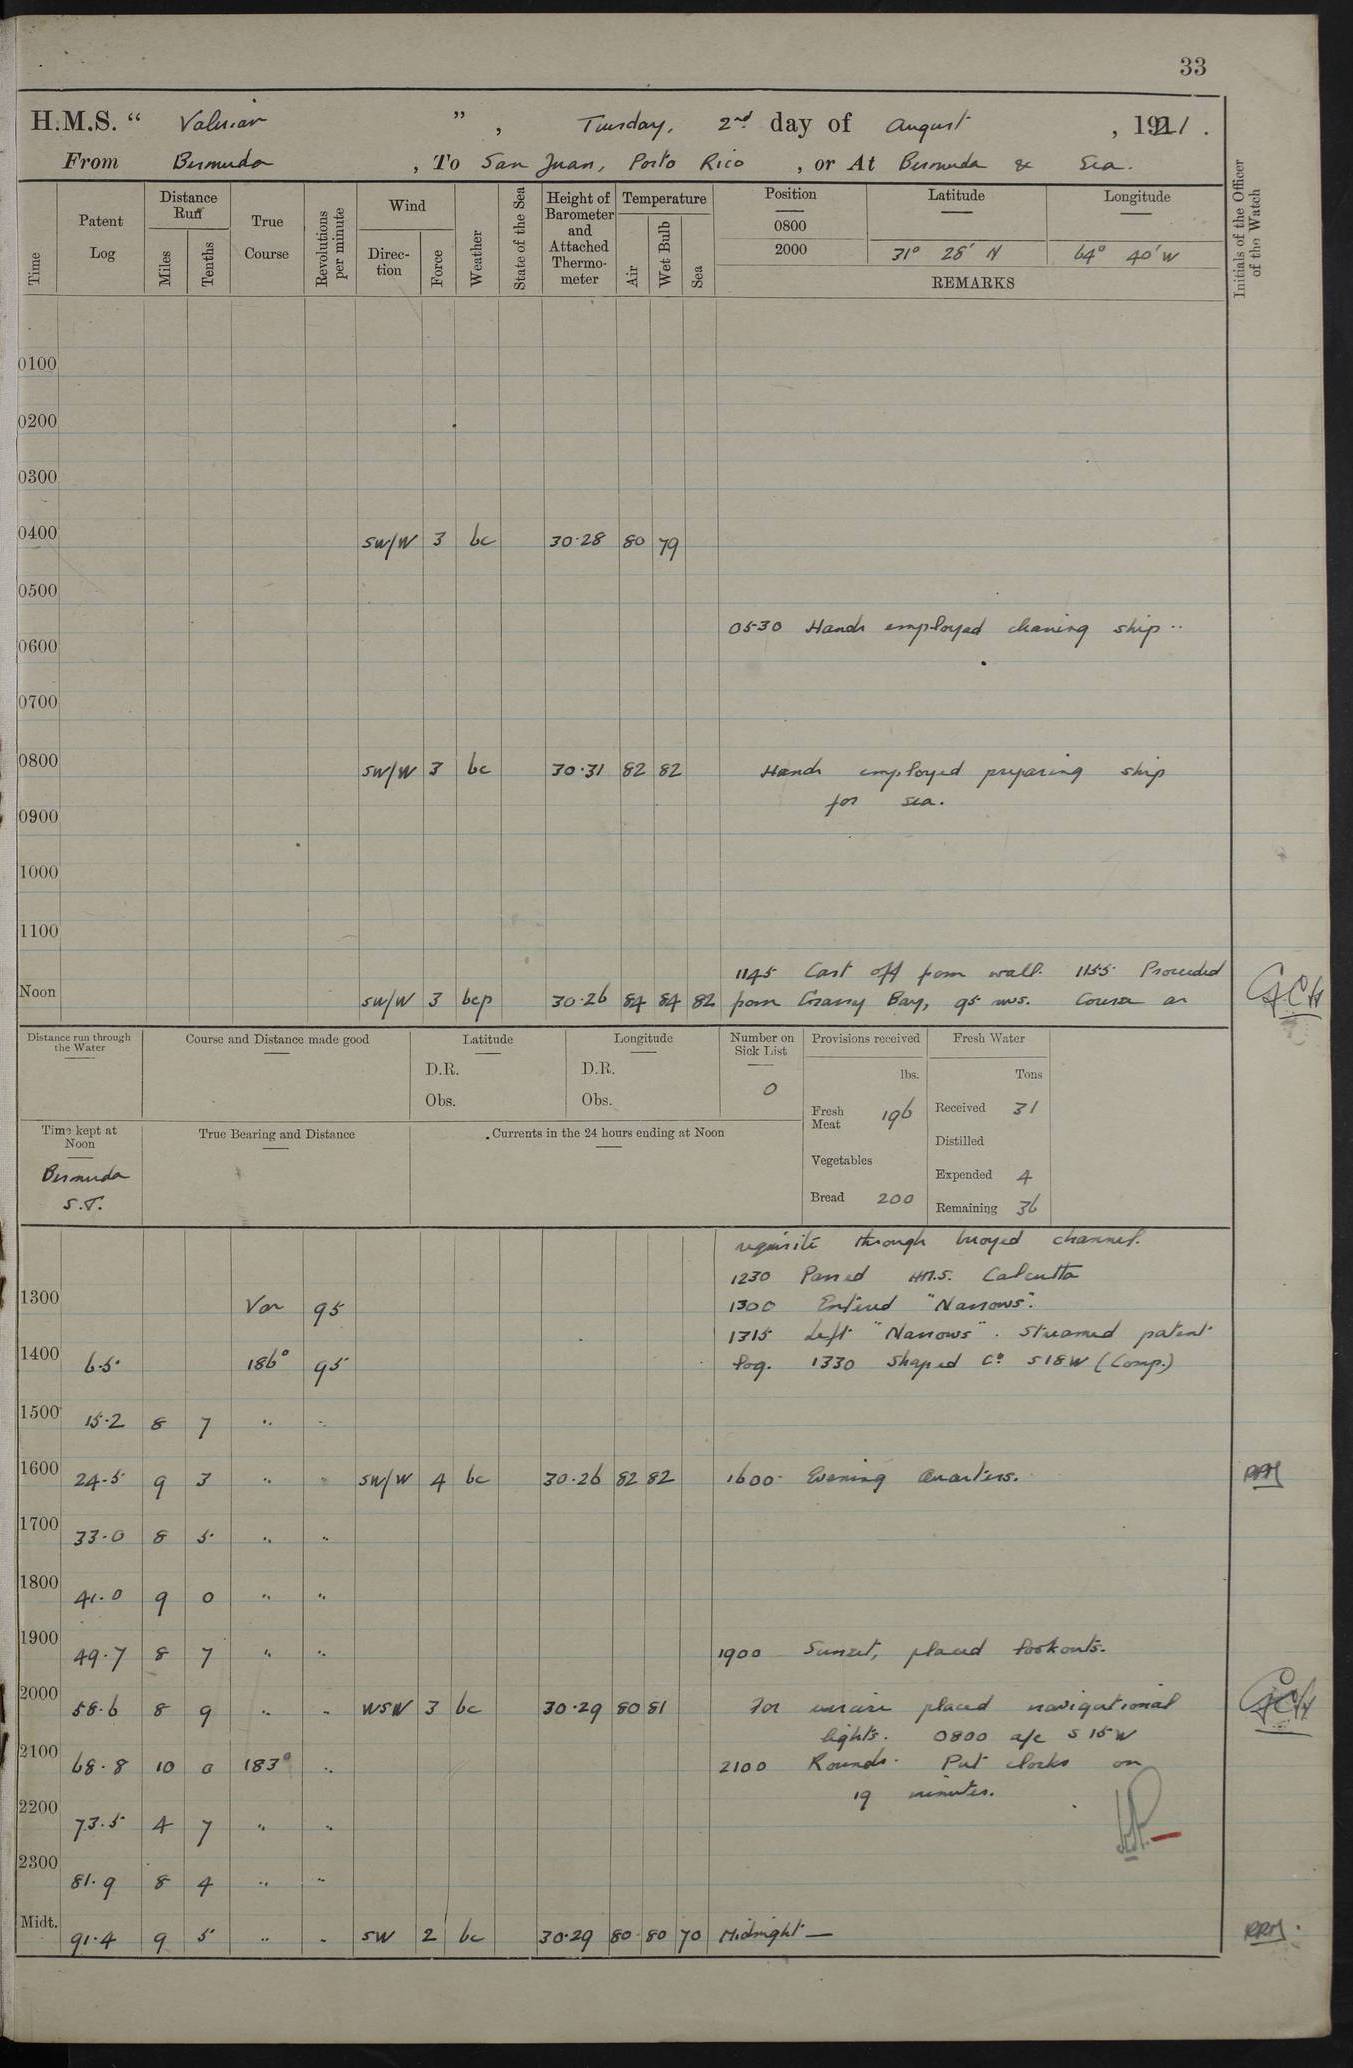 33
H.M.S. “ Valerian ” , Tuesday, 2nd day of August , 1921 .
From Bermuda , To San Juan, Porto Rico , or At Bermuda & Sea.
Time
Patent Log
Distance Run
Miles
Tenths
True Course
Revolutions per minute
Wind
Direction
Force
Weather
State of the Sea
Height of Barometer and Attached Thermometer
Temperature
Air
Wet Bulb
Sea
Position Latitude Longitude
0800
2000 31° 28' N 64° 40' W
REMARKS
Initials of the Officer of the Watch
0100
0200
0300
0400 SW/W 3 bc 30·28 80 79
0500
0530 Hands employed cleaning ship
0600
0700
0800 SW/W 3 bc 30·31 82 82 Hands employed preparing ship
for sea.
0900
1000
1100
1145 Cast off from wall. 1155 Proceeded
Noon SW/W 3 bcp 30·26 84 84 82 from Grassy Bay, 95 revs. Course as GCH
Distance run through the Water
Course and Distance made good
Latitude
D.R.
Obs.
Longitude
D.R.
Obs.
Number on Sick List
0
Provisions received
lbs.
Fresh Meat 196
Vegetables
Bread 200
Fresh Water
Tons
Received 31
Distilled
Expended 4
Remaining 36
Time kept at Noon
Bermuda
S.T.
True Bearing and Distance
Currents in the 24 hours ending at Noon
requisite through buoyed channel.
1230 Passed HMS. Calcutta
1300 Var 95 1300 Entered "Narrows".
1315 Left "Narrows". Streamed patent
1400 6·5 186° 95 log. 1330 Shaped Co S18W (Comp.)
1500 15·2 8 7 " "
1600 24·5 9 3 " " SW/W 4 bc 30·26 82 82 1600 Evening Quarters.
1700 33·0 8 5 " "
1800 41·0 9 0 " "
1900 49·7 8 7 " " 1900 Sunset, placed lookouts.
2000 58·6 8 9 " " WSW 3 bc 30·29 80 81 For exercise placed navigational GCH
lights. 0800 a/c S 15 W
2100 68·8 10 0 183° " 2100 Rounds. Put clocks on
19 minutes.
2200 73·5 4 7 " "
2300 81·9 8 4 " "
Midt. 91·4 9 5 " " SW 2 bc 30·29 80 80 70 Midnight —